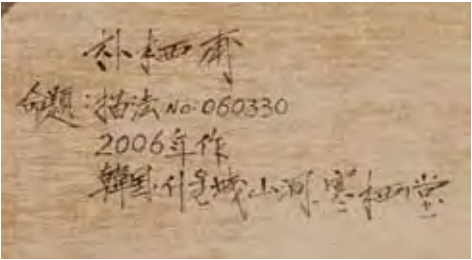 朴栖甫
命題:描法 No.060330
2006年作
韓国.서울城山洞.寒栖堂